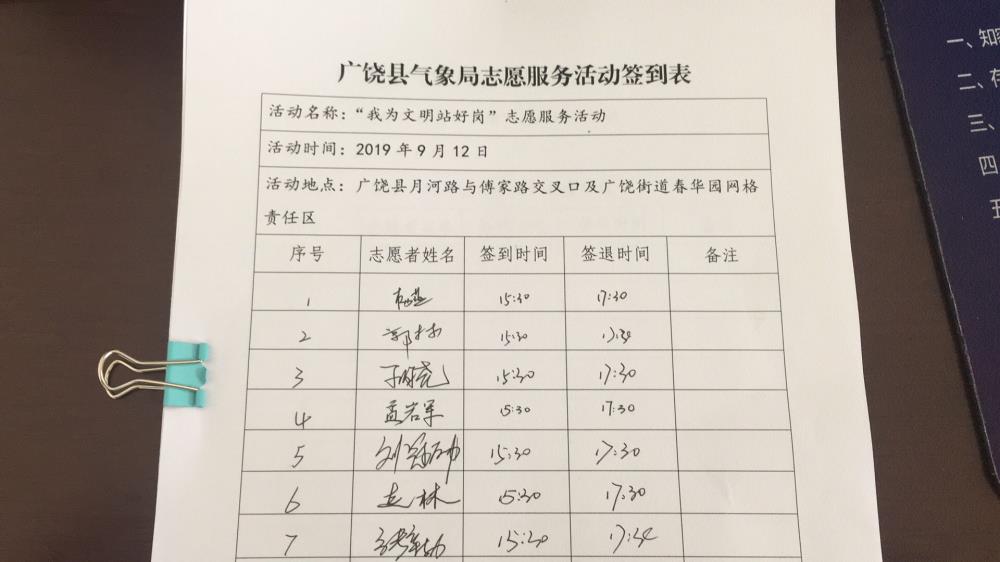 广饶县气象局志愿服务活动签到表
活动名称：“我为文明站好岗”志愿服务活动
活动时间：2019 年 9 月 12 日
活动地点：广饶县月河路与傅家路交叉口及广饶街道春华园网格
责任区
序号 志愿者姓名 签到时间 签退时间 备注
1 15:30 17:30
2 郭林 15:30 17:30
3 15:30 17:30
4 孟岩军 15:30 17:30
5 15:30 17:30
6 孟林 15:30 17:30
7 15:30 17:30
一、知
二、存
三、
四
五